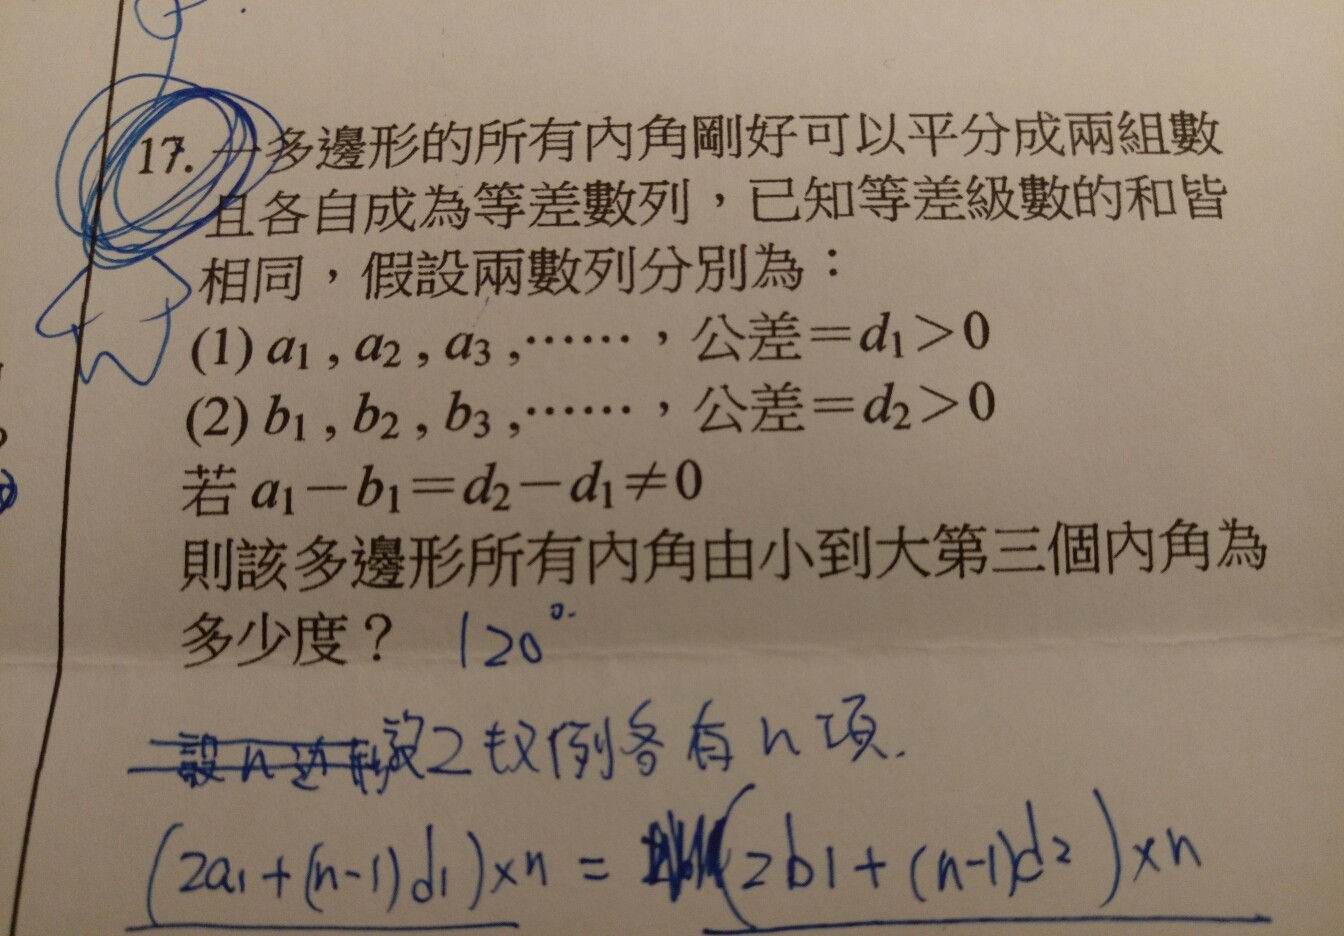 17. 一多邊形的所有內角剛好可以平分成兩組數
且各自成為等差數列，已知等差級數的和皆
相同，假設兩數列分別為：
(1) a₁ , a₂ , a₃ ,……，公差＝d₁＞0
(2) b₁ , b₂ , b₃ ,……，公差＝d₂＞0
若 a₁－b₁＝d₂－d₁≠0
則該多邊形所有內角由小到大第三個內角為
多少度？ 120°
設2数例各有n項.
(2a₁+(n-1)d₁)×n = (2b1+(n-1)d₂)×n